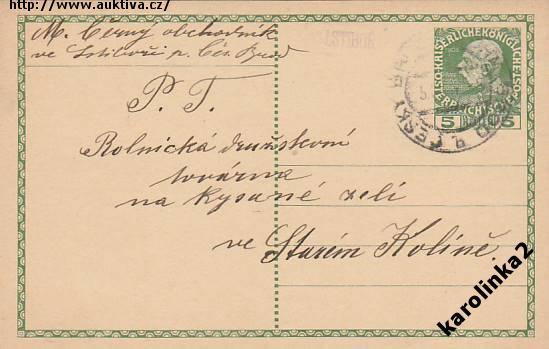 http://www.auktiva.cz/
M. Černý obchodník
ve Lstiboři p. Čes. Brod
P. T.
Rolnická družstevní
továrna
na kysané zelí
ve Starém Kolíně.
KAISERLICHEKÖNIGLICHE
5 5
ČESKÝ
karolinka2